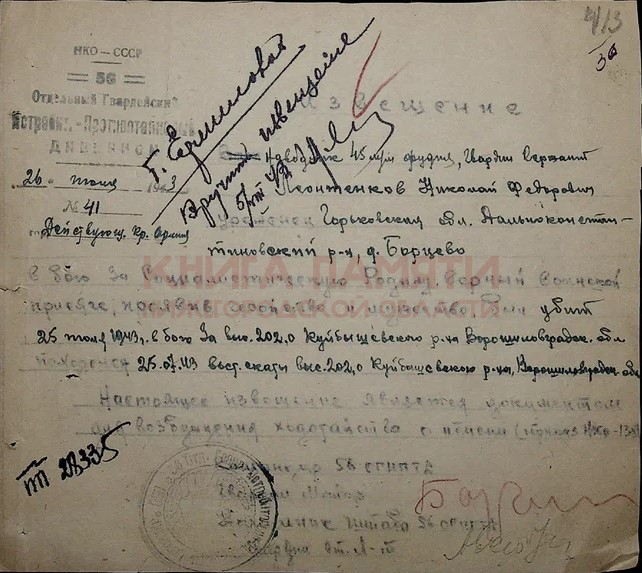 4/13
38
НКО — СССР
56
Отдельный Гвардейский
Истребит. - Противотанковый
Дивизион
26 июля 1943
№ 41
Действующ. Кр. Армия
т. Ермилова
Вручить извещение
Извещение
Наводчик 45 м/м орудия, Гвардии Сержант
Леонтенков Николай Федорович
уроженец Горьковская обл. Дальноконстан-
тиновский р-н, д. Борцево
в бою за Социалистическую Родину, верный воинской
присяге, проявив геройство и мужество, был убит
25 июля 1943 г. в бою за выс. 202,0 Куйбышевского р-на Ворошиловградск. обл
похоронен 25.07.43 вост. скаты выс. 202,0 Куйбышевского р-на, Ворошиловградск. обл
Настоящее извещение является документом
для возбуждения ходатайства о пенсии (приказ НКО-
КНИГА ПАМЯТИ
НИЖЕГОРОДСКОЙ ОБЛАСТИ
Командир 56 ОГИПТД
Гвардии Майор
Начальник штаба 56 ОГИПТД
Гвардии ст. л-т
пп 28335